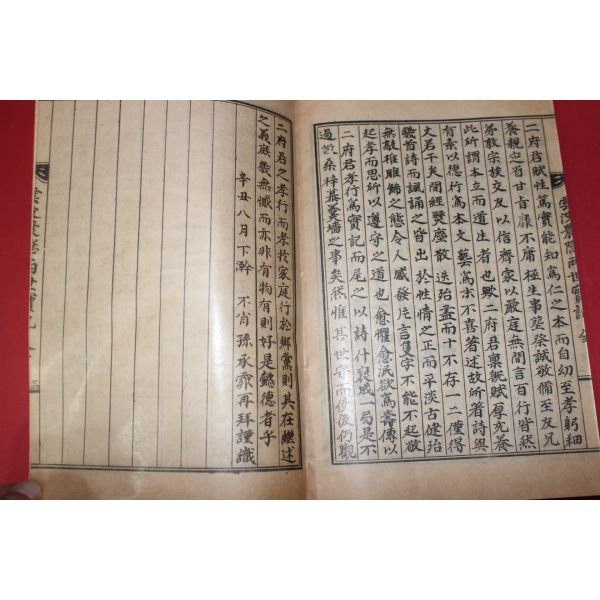 二府君賦性篤實能知爲仁之本而自幼至孝躬細
養親定省甘旨靡不庸極生事葬祭誠敬備至友兄
弟敦宗族交友以信齊家以嚴庭無間言百行皆然
此所謂本立而道生者也歟二府君稟賦厚充養
有素以德行爲本文藝爲末不喜著述故所著詩與
文若干矣閱經燹座散迭殆盡而十不存一二僅得
幾首詩而諷誦之皆出於性情之正而平淡古健殆
無雕錦之態令人感發片言隻字不能不起敬
起孝而思所以遵守之道也愈懼愈泯欲爲壽傳以
二府君孝行篤實記而尾之以詩什裒成一局是不
過桑梓羹墻之事矣然惟其世守而俾後仍觀
二府君之孝行而孝於家庭行於鄉黨則其在繼述
之義庶幾無憾而亦非有物有則好是懿德者乎
辛丑八月下澣 不肖孫承霖再拜謹識